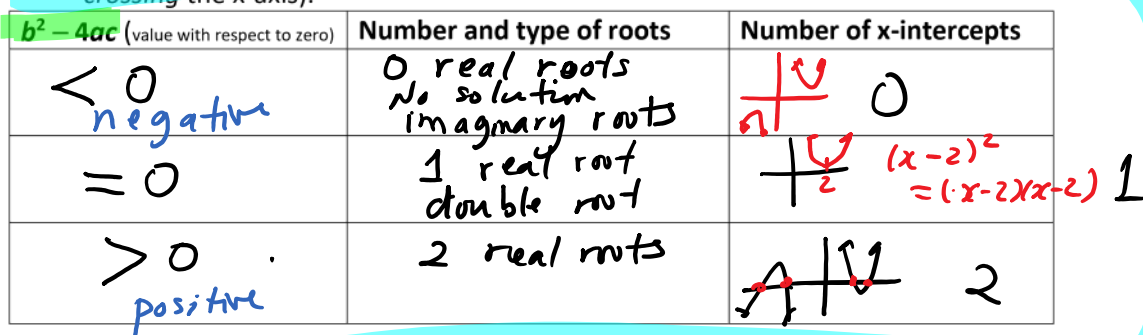 crossing the x-axis).
b² – 4ac (value with respect to zero) Number and type of roots Number of x-intercepts
< 0
negative
0 real roots
No solution
imagmary roots
0
= 0
1 real root
double root
2
(x-2)²
=(x-2)(x-2)
1
> 0
positive
2 real roots
2